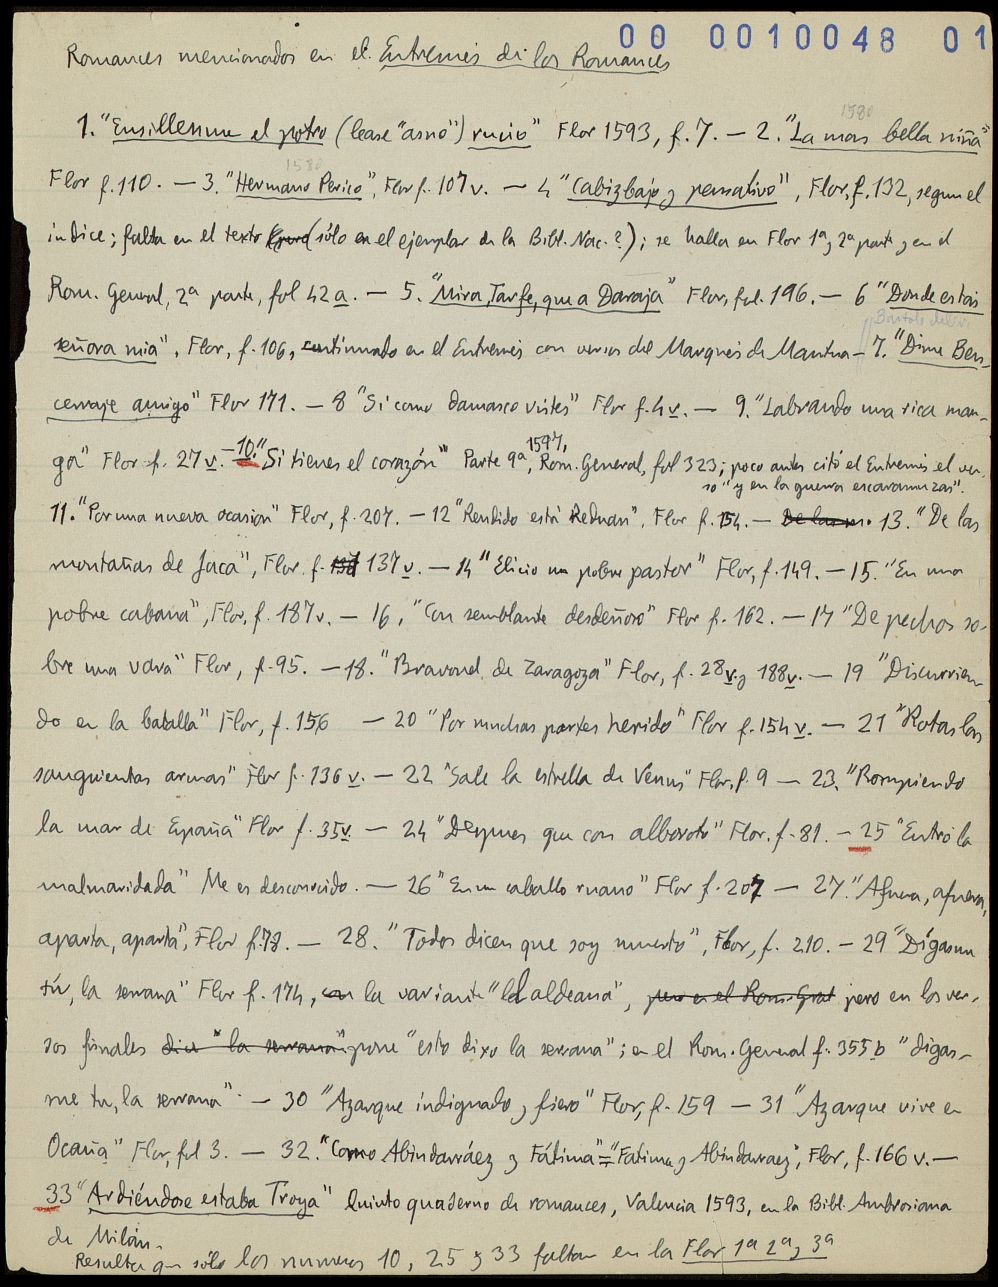 00 0010048 01
Romances mencionados en el Entremés de los Romances
1580
1. "Ensíllenme el potro (léase "asno") rucio" Flor 1593, f. 7. — 2. "La mas bella niña"
1580
Flor f. 110. — 3. "Hermano Perico", Flor f. 107 v. — 4 "Cabizbajo y pensativo", Flor, f. 132, segun el
indice; falta en el texto (sólo en el ejemplar de la Bibl. Nac.?); se halla en Flor 1ª y 2ª parte y en el
Rom. General, 2ª parte, fol 42 a. — 5. "Mira, Tarfe, que a Daraja" Flor, fol. 196. — 6 "Donde estás
señora mia", Flor, f. 106, continuado en el Entremés con versos del Marqués de Mantua — 7. "Dime Ben-
cerraje amigo" Flor 171. — 8 "Si como damasco vistes" Flor f. 4 v. — 9. "Labrando una rica man-
ga" Flor f. 27 v. — 10. "Si tienes el corazón" Parte 9ª, 1597, Rom. General, fol 323; poco antes citó el Entremés el ver-
so "y en la guerra escaramuzas".
11. "Por una nueva ocasion" Flor, f. 207. — 12 "Rendido está Reduan", Flor f. 154. — De las 13. "De las
montañas de Jaca", Flor. f. 137 v. — 14 "Elicio un pobre pastor" Flor, f. 149. — 15. "En una
pobre cabaña", Flor, f. 187 v. — 16, "Con semblante desdeñoso" Flor f. 162. — 17 "De pechos so-
bre una vara" Flor, f. 95. — 18. "Bravonel de Zaragoza" Flor, f. 28 v. y 188 v. — 19 "Discurrien-
do en la batalla" Flor, f. 156 — 20 "Por muchas partes herido" Flor f. 154 v. — 21 "Rotas las
sangrientas armas" Flor f. 136 v. — 22 "Sale la estrella de Venus" Flor, f. 9 — 23. "Rompiendo
la mar de España" Flor f. 35 v. — 24 "Despues que con alboroto" Flor. f. 81. — 25 "Entró la
malmaridada" Me es desconocido. — 26 "En un caballo ruano" Flor f. 207 — 27. "Afuera, afuera,
aparta, aparta", Flor f. 78. — 28. "Todos dicen que soy muerto", Flor, f. 210. — 29 "Dígasme
tú, la serrana" Flor f. 174, con la variante "el aldeana", pero en el Rom. Gral pero en los ver-
sos finales dice "la serrana" pone "esto dixo la serrana"; en el Rom. General f. 355 b "digas-
me tu, la serrana" — 30 "Azarque indignado y fiero" Flor, f. 159 — 31 "Azarque vive en
Ocaña" Flor, fol 3. — 32. "Como Abindarráez y Fátima" = "Fatima y Abindarraez", Flor, f. 166 v. —
33 "Ardiéndose estaba Troya" Quinto quaderno de romances, Valencia 1593, en la Bibl. Ambrosiana
de Milán.
Resulta que sólo los numeros 10, 25 y 33 faltan en la Flor 1ª 2ª y 3ª